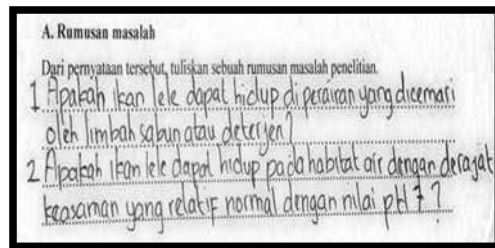 A. Rumusan masalah
Dari pernyataan tersebut, tuliskan sebuah rumusan masalah penelitian.
1 Apakah ikan lele dapat hidup di perairan yang dicemari
oleh limbah sabun atau deterjen?
2 Apakah ikan lele dapat hidup pada habitat air dengan derajat
keasaman yang relatif normal dengan nilai pH 7?